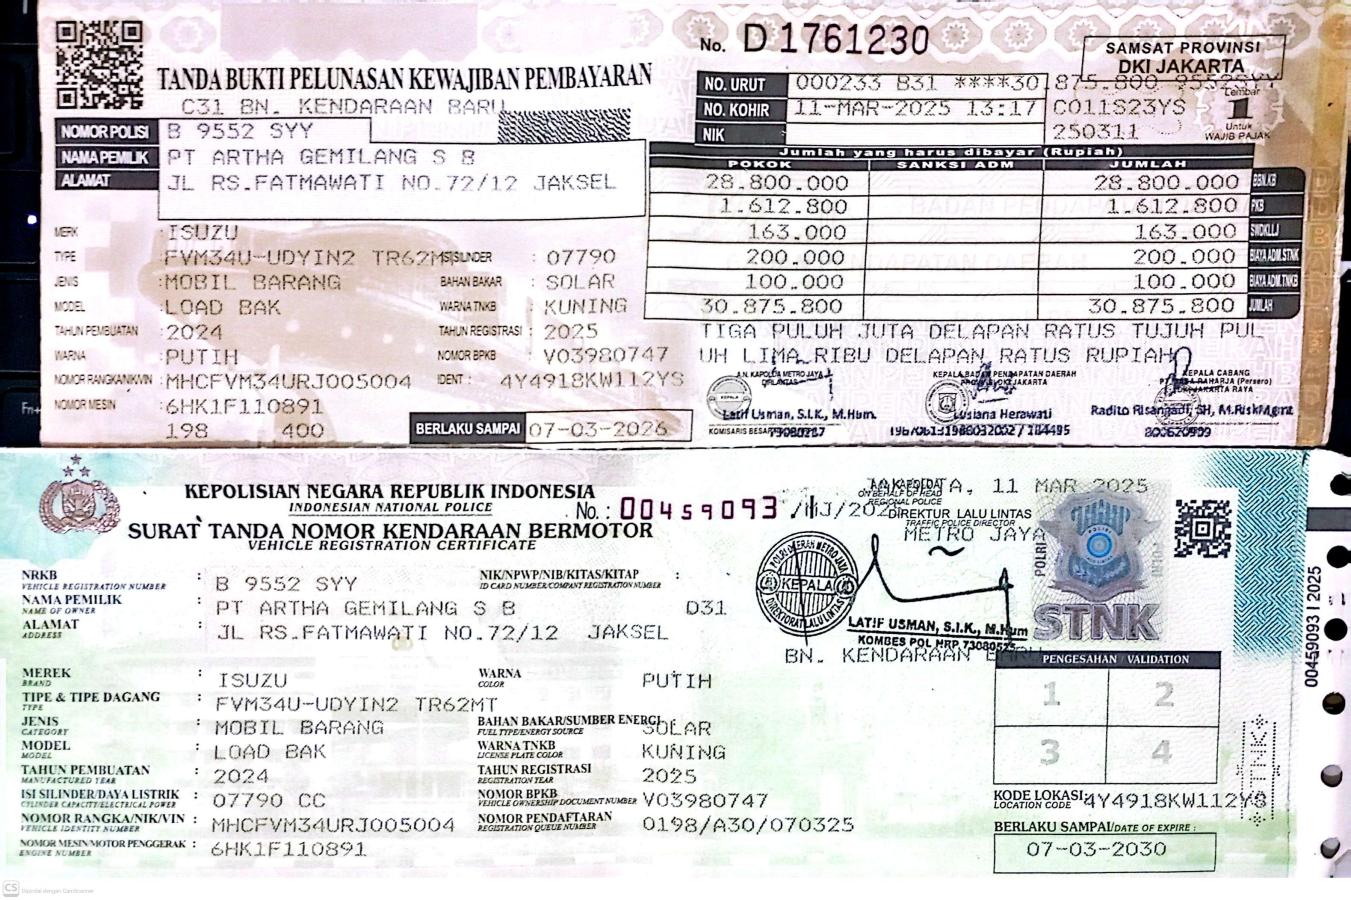 No. D 1761230
SAMSAT PROVINSI
DKI JAKARTA
TANDA BUKTI PELUNASAN KEWAJIBAN PEMBAYARAN
C31 BN. KENDARAAN BARU
NO. URUT 000233 B31 ****30.875.800 9552SYY
NO. KOHIR 11-MAR-2025 13:17 C011S23YS
NIK 250311
Lembar
1
Untuk
WAJIB PAJAK
NOMOR POLISI B 9552 SYY
NAMA PEMILIK PT ARTHA GEMILANG S B
ALAMAT JL RS.FATMAWATI NO.72/12 JAKSEL
MERK : ISUZU
TYPE : FVM34U-UDYIN2 TR62M ISI SILINDER : 07790
JENIS : MOBIL BARANG BAHAN BAKAR : SOLAR
MODEL : LOAD BAK WARNA TNKB : KUNING
TAHUN PEMBUATAN : 2024 TAHUN REGISTRASI : 2025
WARNA : PUTIH NOMOR BPKB : V03980747
NOMOR RANGKA/NIK/VIN : MHCFVM34URJ005004 IDENT : 4Y4918KW112YS
NOMOR MESIN : 6HK1F110891
198 400 BERLAKU SAMPAI 07-03-2026
Jumlah yang harus dibayar (Rupiah)
POKOK SANKSI ADM JUMLAH
28.800.000 28.800.000 BBN.KB
1.612.800 1.612.800 PKB
163.000 163.000 SWDKLLJ
200.000 200.000 BIAYA ADM.STNK
100.000 100.000 BIAYA ADM.TNKB
30.875.800 30.875.800 JUMLAH
TIGA PULUH JUTA DELAPAN RATUS TUJUH PUL
UH LIMA RIBU DELAPAN RATUS RUPIAH
A.N. KAPOLDA METRO JAYA
DIRLANTAS
Latif Usman, S.I.K., M.Hum.
KOMISARIS BESAR
KEPALA BADAN PENDAPATAN DAERAH
Lusiana Herawati
KEPALA CABANG
Radito Risangadi, SH, M.RiskMgmt
KEPOLISIAN NEGARA REPUBLIK INDONESIA
INDONESIAN NATIONAL POLICE
No. : 00459093 /MJ/2025
SURAT TANDA NOMOR KENDARAAN BERMOTOR
VEHICLE REGISTRATION CERTIFICATE
JAKARTA, 11 MAR 2025
ON BEHALF OF HEAD
REGIONAL POLICE
DIREKTUR LALU LINTAS
TRAFFIC POLICE DIRECTOR
METRO JAYA
POLRI DAERAH METRO JAYA
KEPALA
DIREKTORAT LALU LINTAS
POLRI
STNK
LATIF USMAN, S.I.K., M.Hum
KOMBES POL NRP
BN. KENDARAAN BARU
NRKB : B 9552 SYY NIK/NPWP/NIB/KITAS/KITAP :
VEHICLE REGISTRATION NUMBER ID CARD NUMBER/COMPANY REGISTRATION NUMBER
NAMA PEMILIK : PT ARTHA GEMILANG S B D31
NAME OF OWNER
ALAMAT : JL RS.FATMAWATI NO.72/12 JAKSEL
ADDRESS
MEREK : ISUZU WARNA : PUTIH
BRAND COLOR
TIPE & TIPE DAGANG : FVM34U-UDYIN2 TR62MT
TYPE
JENIS : MOBIL BARANG BAHAN BAKAR/SUMBER ENERGI SOLAR
CATEGORY FUEL TYPE/ENERGY SOURCE
MODEL : LOAD BAK WARNA TNKB : KUNING
MODEL LICENSE PLATE COLOR
TAHUN PEMBUATAN : 2024 TAHUN REGISTRASI : 2025
MANUFACTURED YEAR REGISTRATION YEAR
ISI SILINDER/DAYA LISTRIK : 07790 CC NOMOR BPKB : V03980747
CYLINDER CAPACITY/ELECTRICAL POWER VEHICLE OWNERSHIP DOCUMENT NUMBER
NOMOR RANGKA/NIK/VIN : MHCFVM34URJ005004 NOMOR PENDAFTARAN : 0198/A30/070325
VEHICLE IDENTITY NUMBER REGISTRATION QUEUE NUMBER
NOMOR MESIN/MOTOR PENGGERAK : 6HK1F110891
ENGINE NUMBER
PENGESAHAN / VALIDATION
1 2
3 4
KODE LOKASI: 4Y4918KW112YS
LOCATION CODE
BERLAKU SAMPAI/DATE OF EXPIRE :
07-03-2030
00459093 | 2025
STNK
Fn+
CS Dipindai dengan CamScanner